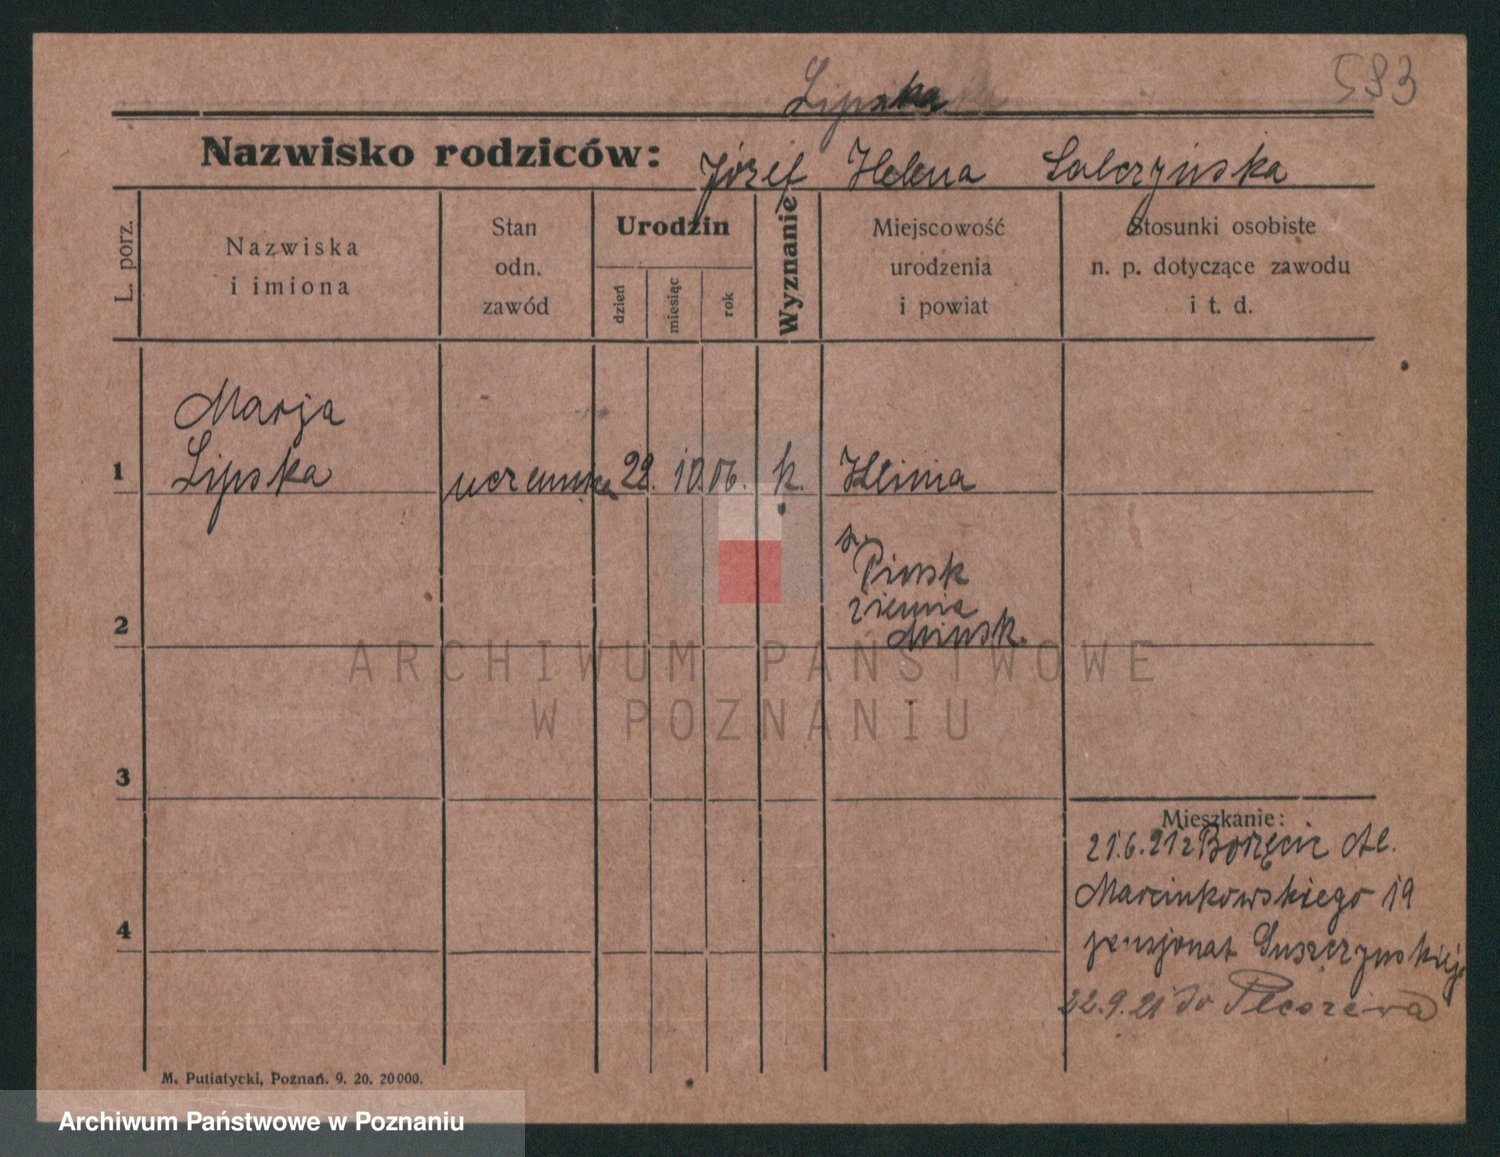 583
Lipska
Nazwisko rodziców: Józef Helena Salczyńska
L. porz.
Nazwiska
i imiona
Stan
odn.
zawód
Urodzin
dzień
miesiąc
rok
Wyznanie
Miejscowość
urodzenia
i powiat
Stosunki osobiste
n. p. dotyczące zawodu
i t. d.
1
Marja
Lipska
uczennica
29. 10. 06.
k.
Hlinna
Pinsk
ziemia
minsk.
2
3
4
Mieszkanie:
21.6.21 z Borzęcic Al.
Marcinkowskiego 19
pensjonat Suszczynskiej
22.9.21 do Pleszewa
M. Putiatycki, Poznań. 9. 20. 20000.
ARCHIWUM PAŃSTWOWE
W POZNANIU
Archiwum Państwowe w Poznaniu